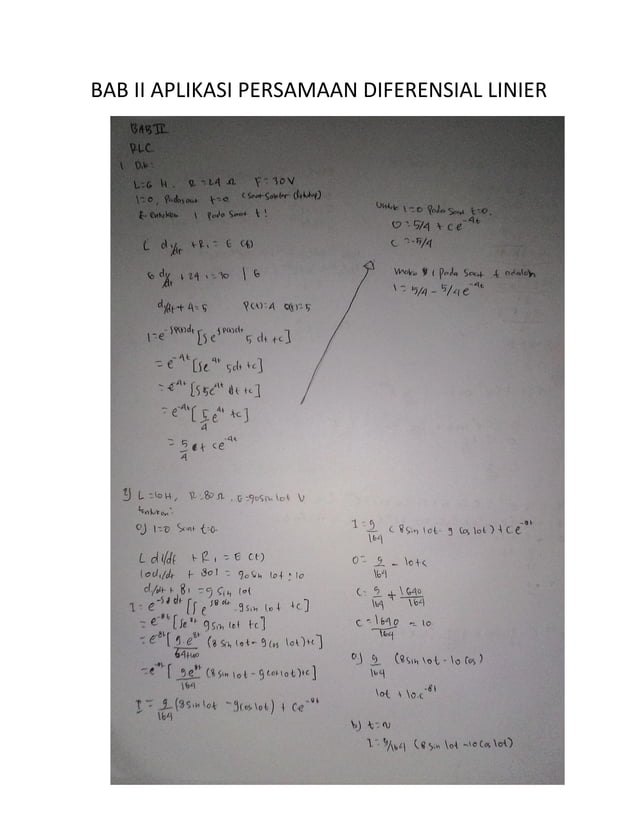 BAB II APLIKASI PERSAMAAN DIFERENSIAL LINIER
BAB II
RLC
1. Dik:
L=6 H, R=24 Ω E=30V
I=0, Pada saat t=0 (Saat Saklar ditutup)
I Pada Saat t!
L di/dt + Ri = E (t)
6 di/dt + 24 i = 30 | 6
di/dt + 4 = 5 P(t)=4 Q(t)=5
I=e^-∫P(t)dt [∫e^∫P(t)dt 5 dt +c]
= e^-4t [∫e^4t 5dt +c]
= e^-4t [∫5e^4t dt +c]
= e^-4t [5/4 e^4t +c]
= 5/4 + ce^-4t
Untuk I=0 Pada Saat t=0.
0=5/4 + ce^-4t
C=-5/4
maka I Pada Saat t adalah
I=5/4 - 5/4e^-4t
2) L=10H, R=80 Ω, E=90sin 10t V
tentukan:
a) I=0 Saat t=0
L di/dt + Ri = E (t)
10di/dt + 80i = 90 Sin 10t : 10
di/dt + 8i = 9 Sin 10t
I = e^-∫8dt [∫e^∫8dt 9 sin 10t +c]
= e^-8t [∫e^8t 9 sin 10t +c]
= e^-8t [9.e^8t/64+100 (8 sin 10t - 9 cos 10t)+c]
= e^-8t [9e^8t/164 (8 sin 10t - 9 cos 10t)+c]
I = 9/164 (8 sin 10t - 9 cos 10t) + Ce^-8t
I = 9/164 (8 sin 10t - 9 cos 10t) + Ce^-8t
0 = 9/164 - 10+c
C = 9/164 + 1640/164
C = 1640/164 = 10
a) 9/164 (8sin 10t - 10 cos)
10t + 10.e^-8t
b) t=~
I = 9/164 (8 sin 10t - 10 cos 10t)